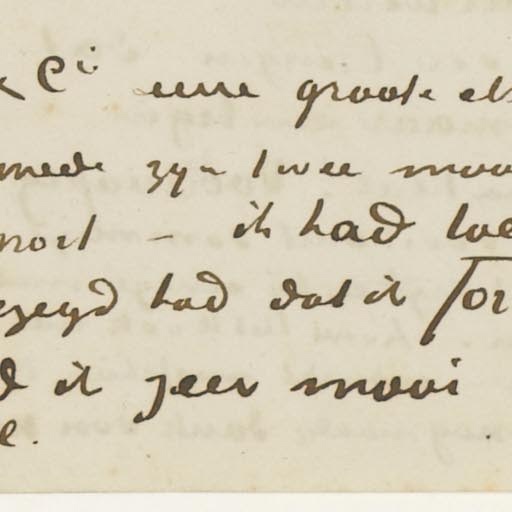 & Cⁱ eene groote els
mede zyn twee moo
noort – ik had twe
ezegd had dat ik For
d ik zeer mooi
e.